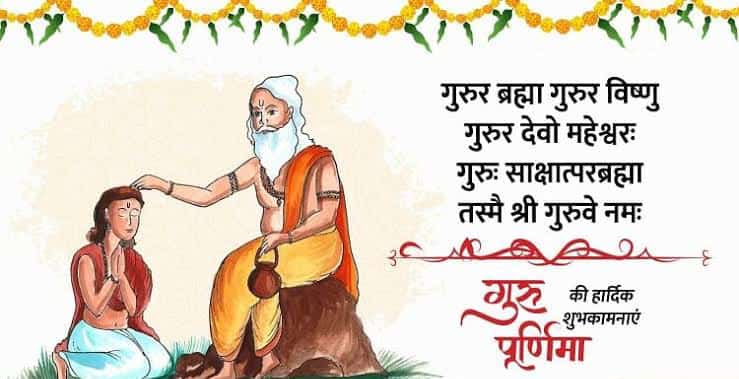 गुरुर ब्रह्मा गुरुर विष्णु
गुरुर देवो महेश्वरः
गुरुः साक्षात्परब्रह्मा
तस्मै श्री गुरुवे नमः
गुरु
पूर्णिमा
की हार्दिक
शुभकामनाएं